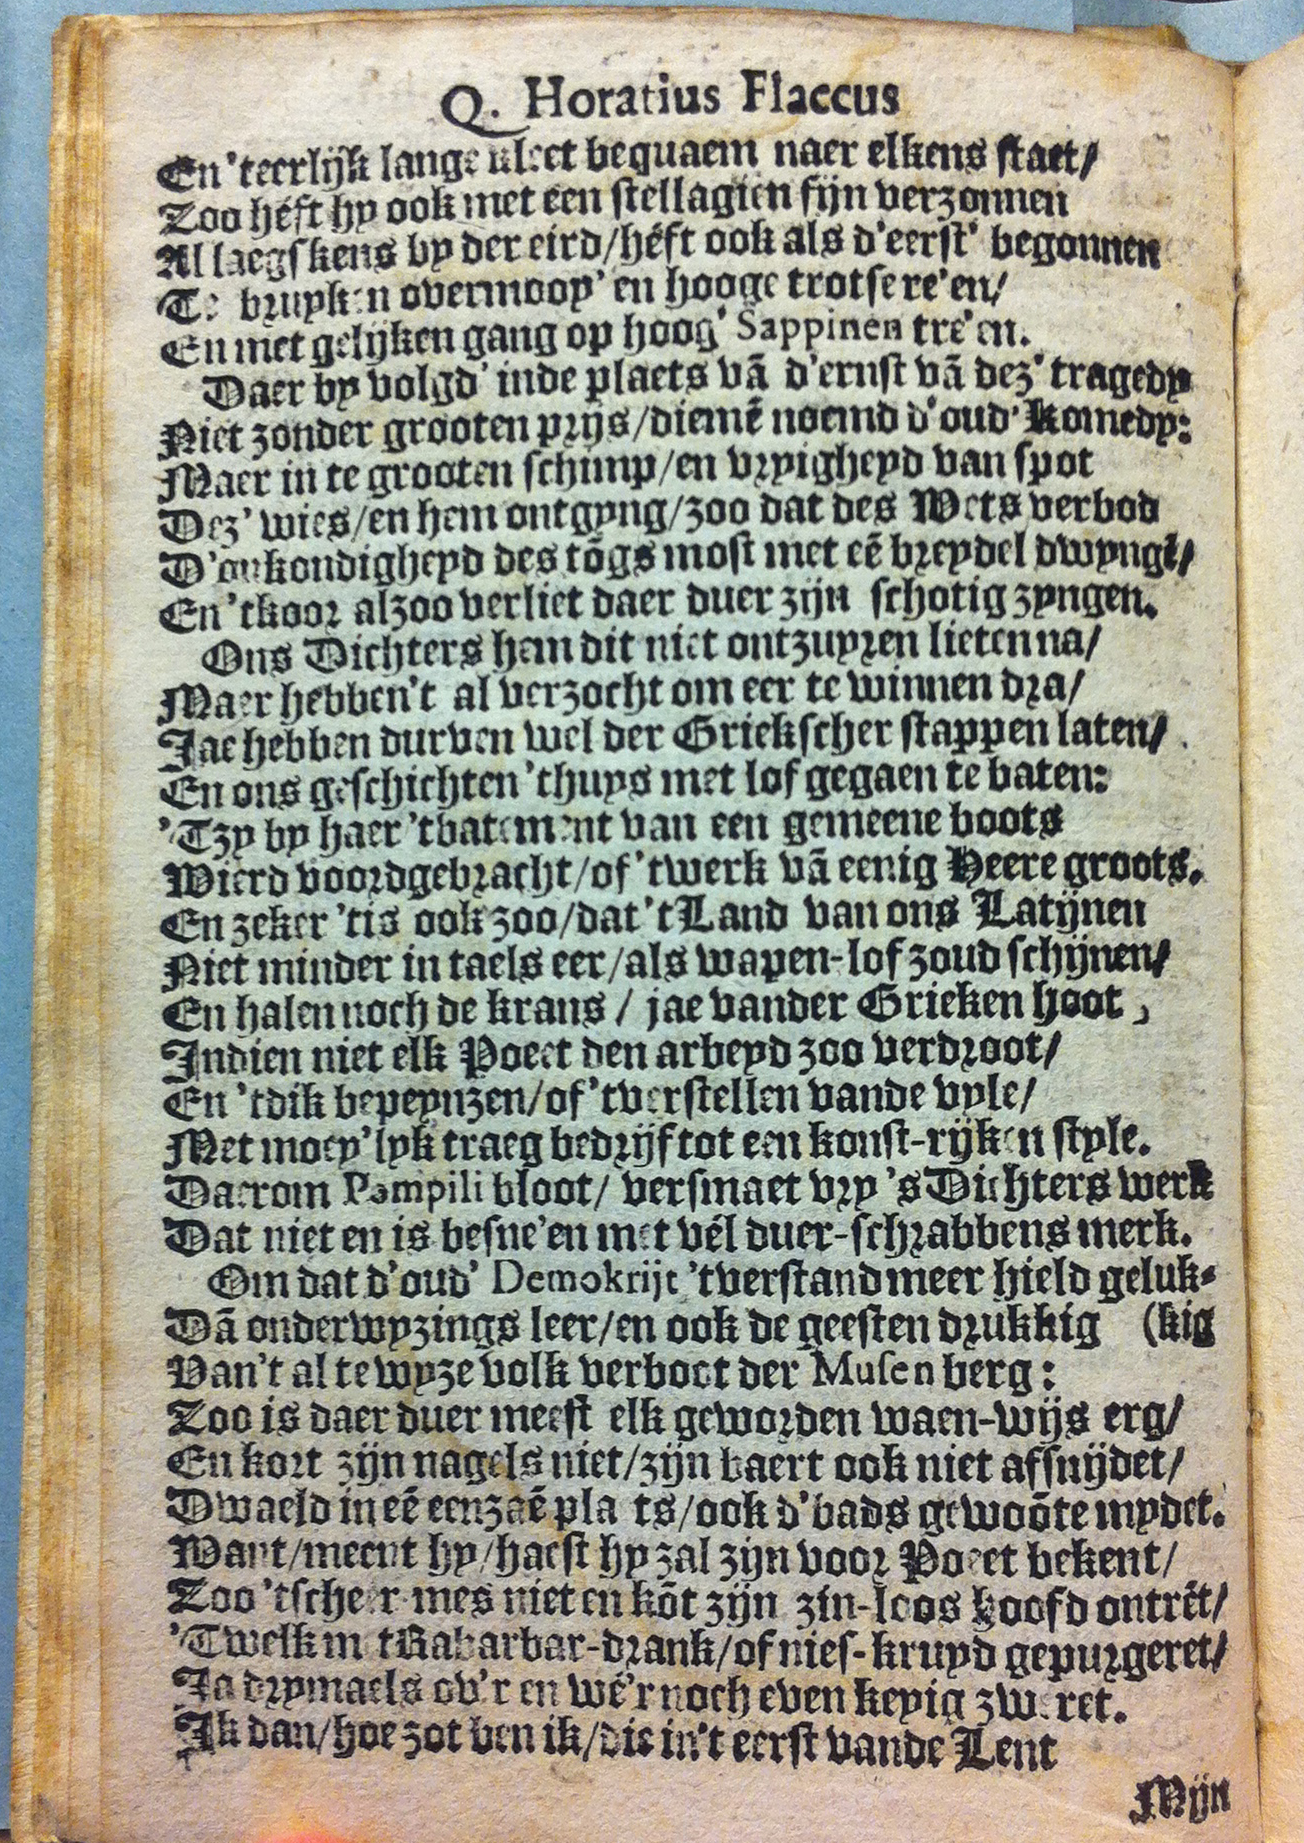 Q. Horatius Flaccus
En 'teerlijk lange kleet bequaem naer elkens staet/
Zoo héft hy ook met een stellagien fijn verzonnen
Al laegskens by der eird/héft ook als d'eerst' begonnen
Te bruyken overmooy' en hooge trotse re'en/
En met gelijken gang op hoog' Sappinen tre'en.
Daer by volgd' inde plaets vā d'ernst vā dez' tragedy
Niet zonder grooten prijs/diemē noemd d'oud' Komedy:
Maer in te grooten schimp/en vryigheyd van spot
Dez' wies/en hem ontgyng/zoo dat des Wets verbod
D'onkondigheyd des tōgs most met eē breydel dwyngē/
En 'tkoor alzoo verliet daer duer zijn schotig zyngen.
Ons Dichters hem dit niet ontzuyren lieten na/
Maer hebben't al verzocht om eer te winnen dra/
Jae hebben durven wel der Griekscher stappen laten/
En ons geschichten 'thuys met lof gegaen te baten:
'Tzy by haer 'tbatement van een gemeene boots
Wierd voordgebracht/of 'twerk vā eenig Heere groots.
En zeker 'tis ook zoo/dat 't Land van ons Latijnen
Niet minder in taels eer/als wapen-lof zoud schijnen/
En halen noch de krans / jae vander Grieken hoot,
Indien niet elk Poeet den arbeyd zoo verdroot/
En 'tdik bepeynzen/of 'tverstellen vande vyle/
Met moey'lyk traeg bedrijf tot een konst-rijken style.
Daerom Pompili bloot/ versmaet vry 's Dichters werk
Dat niet en is besne'en met vél duer-schrabbens merk.
Om dat d'oud' Demokrijt 'tverstand meer hield geluk-
Dā onderwyzings leer/en ook de geesten drukkig (kig
Van't al te wyze volk verboot der Musen berg:
Zoo is daer duer meest elk geworden waen-wijs erg/
En kort zijn nagels niet/zijn baert ook niet afsnijdet/
Dwaeld in eē eenzaē plaets/ook d'bads gewoōte mydet.
Want/meent hy/haest hy zal zijn voor Poeet bekent/
Zoo 'tscheer mes niet en kōt zijn zin-loos hoofd ontrēt/
'Twelk met Rabarbar-drank/of nies-kruyd gepurgeret/
Ja drymaels ov'r en wé'r noch even keyig zweret.
Ik dan/hoe zot ben ik/die in't eerst vande Lent
Mijn